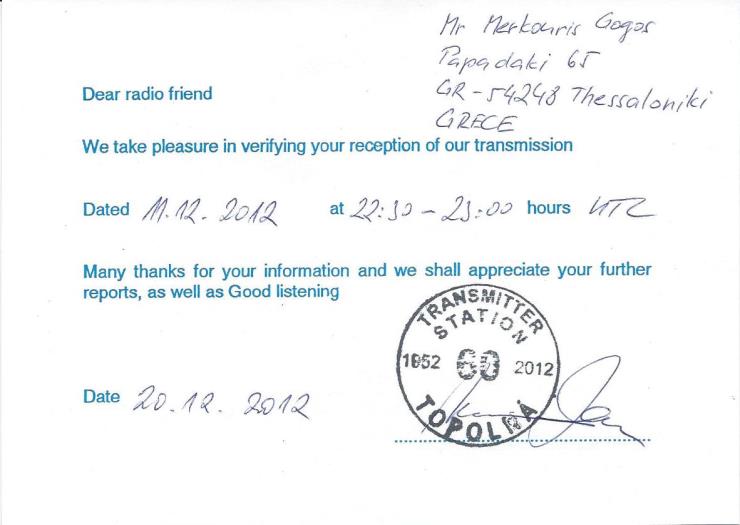 Mr Merkouris Gogos
Papadaki 65
GR-54248 Thessaloniki
GRECE
Dear radio friend
We take pleasure in verifying your reception of our transmission
Dated 11.12.2012 at 22:30 - 23:00 hours UTC
Many thanks for your information and we shall appreciate your further
reports, as well as Good listening
TRANSMITTER
STATION
1952 60 2012
TOPOLNÁ
Date 20.12.2012